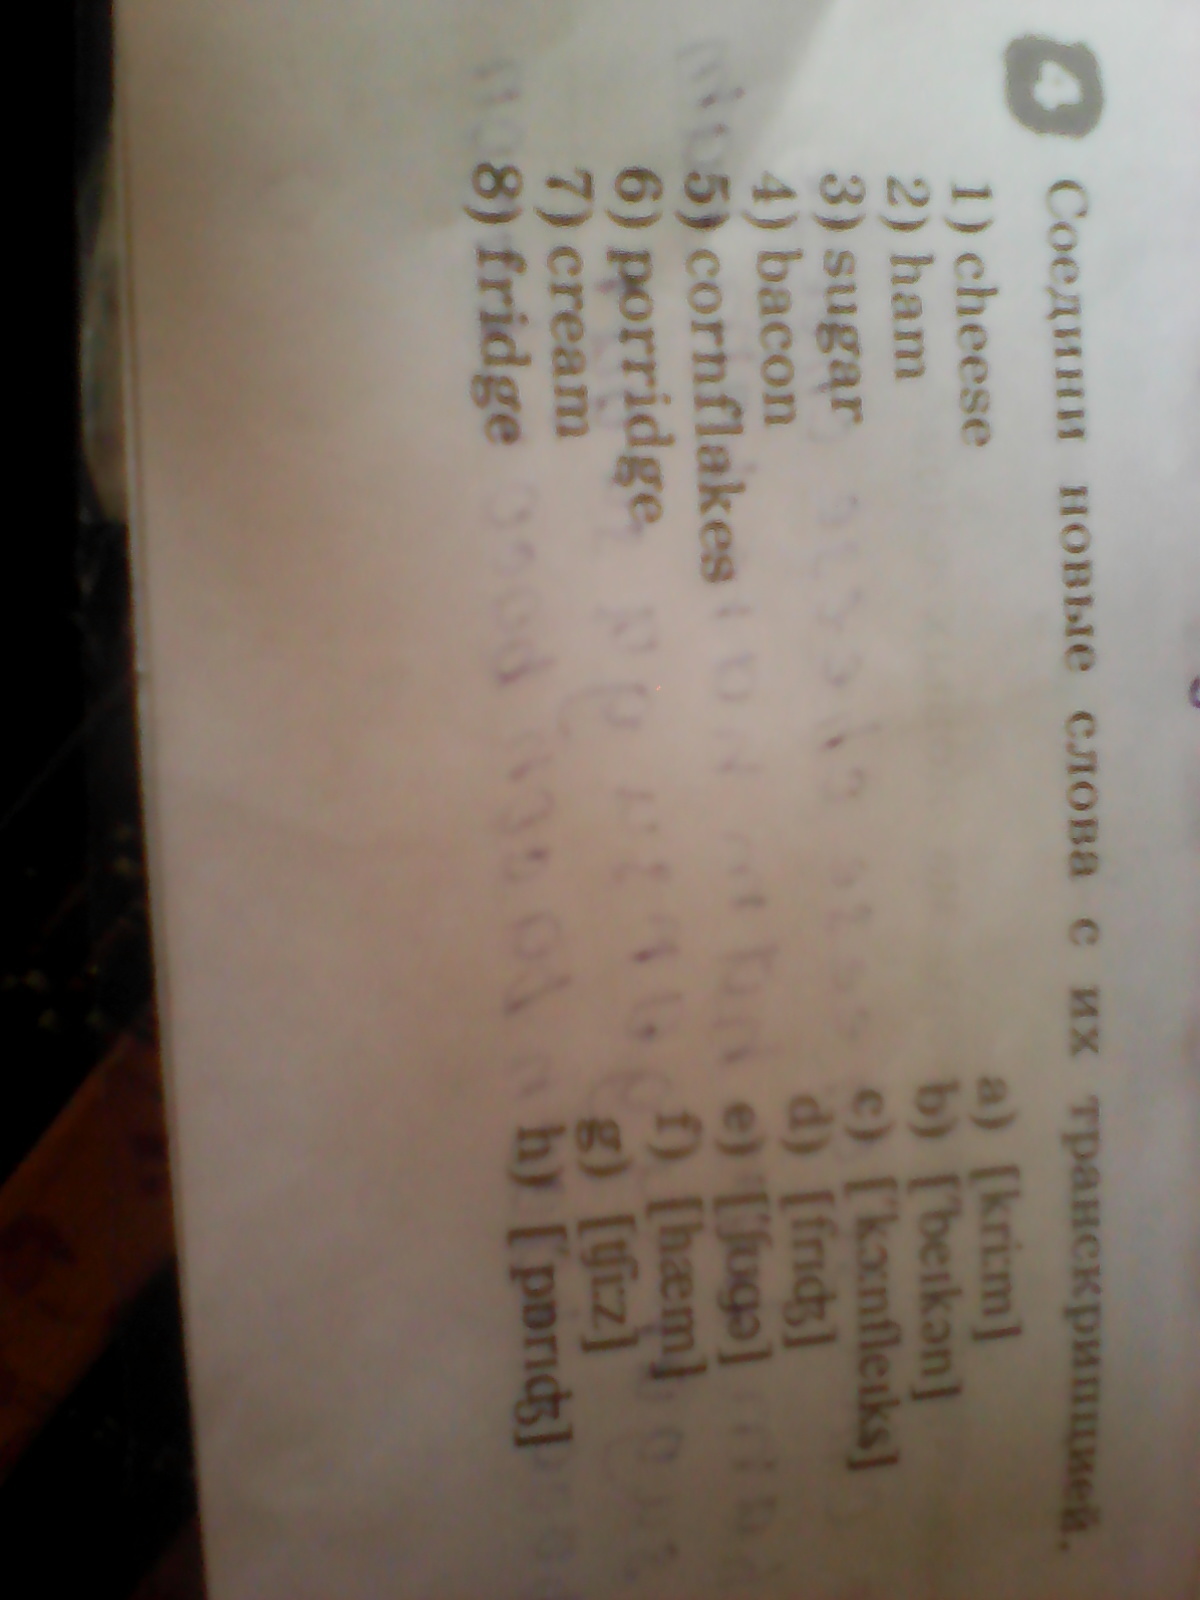 4 Соедини новые слова с их транскрипцией.
1) cheese
2) ham
3) sugar
4) bacon
5) cornflakes
6) porridge
7) cream
8) fridge
a) [kriːm]
b) [ˈbeɪkən]
c) [ˈkɔːnfleɪks]
d) [frɪʤ]
e) [ˈʃʊgə]
f) [hæm]
g) [ʧiːz]
h) [ˈpɒrɪʤ]